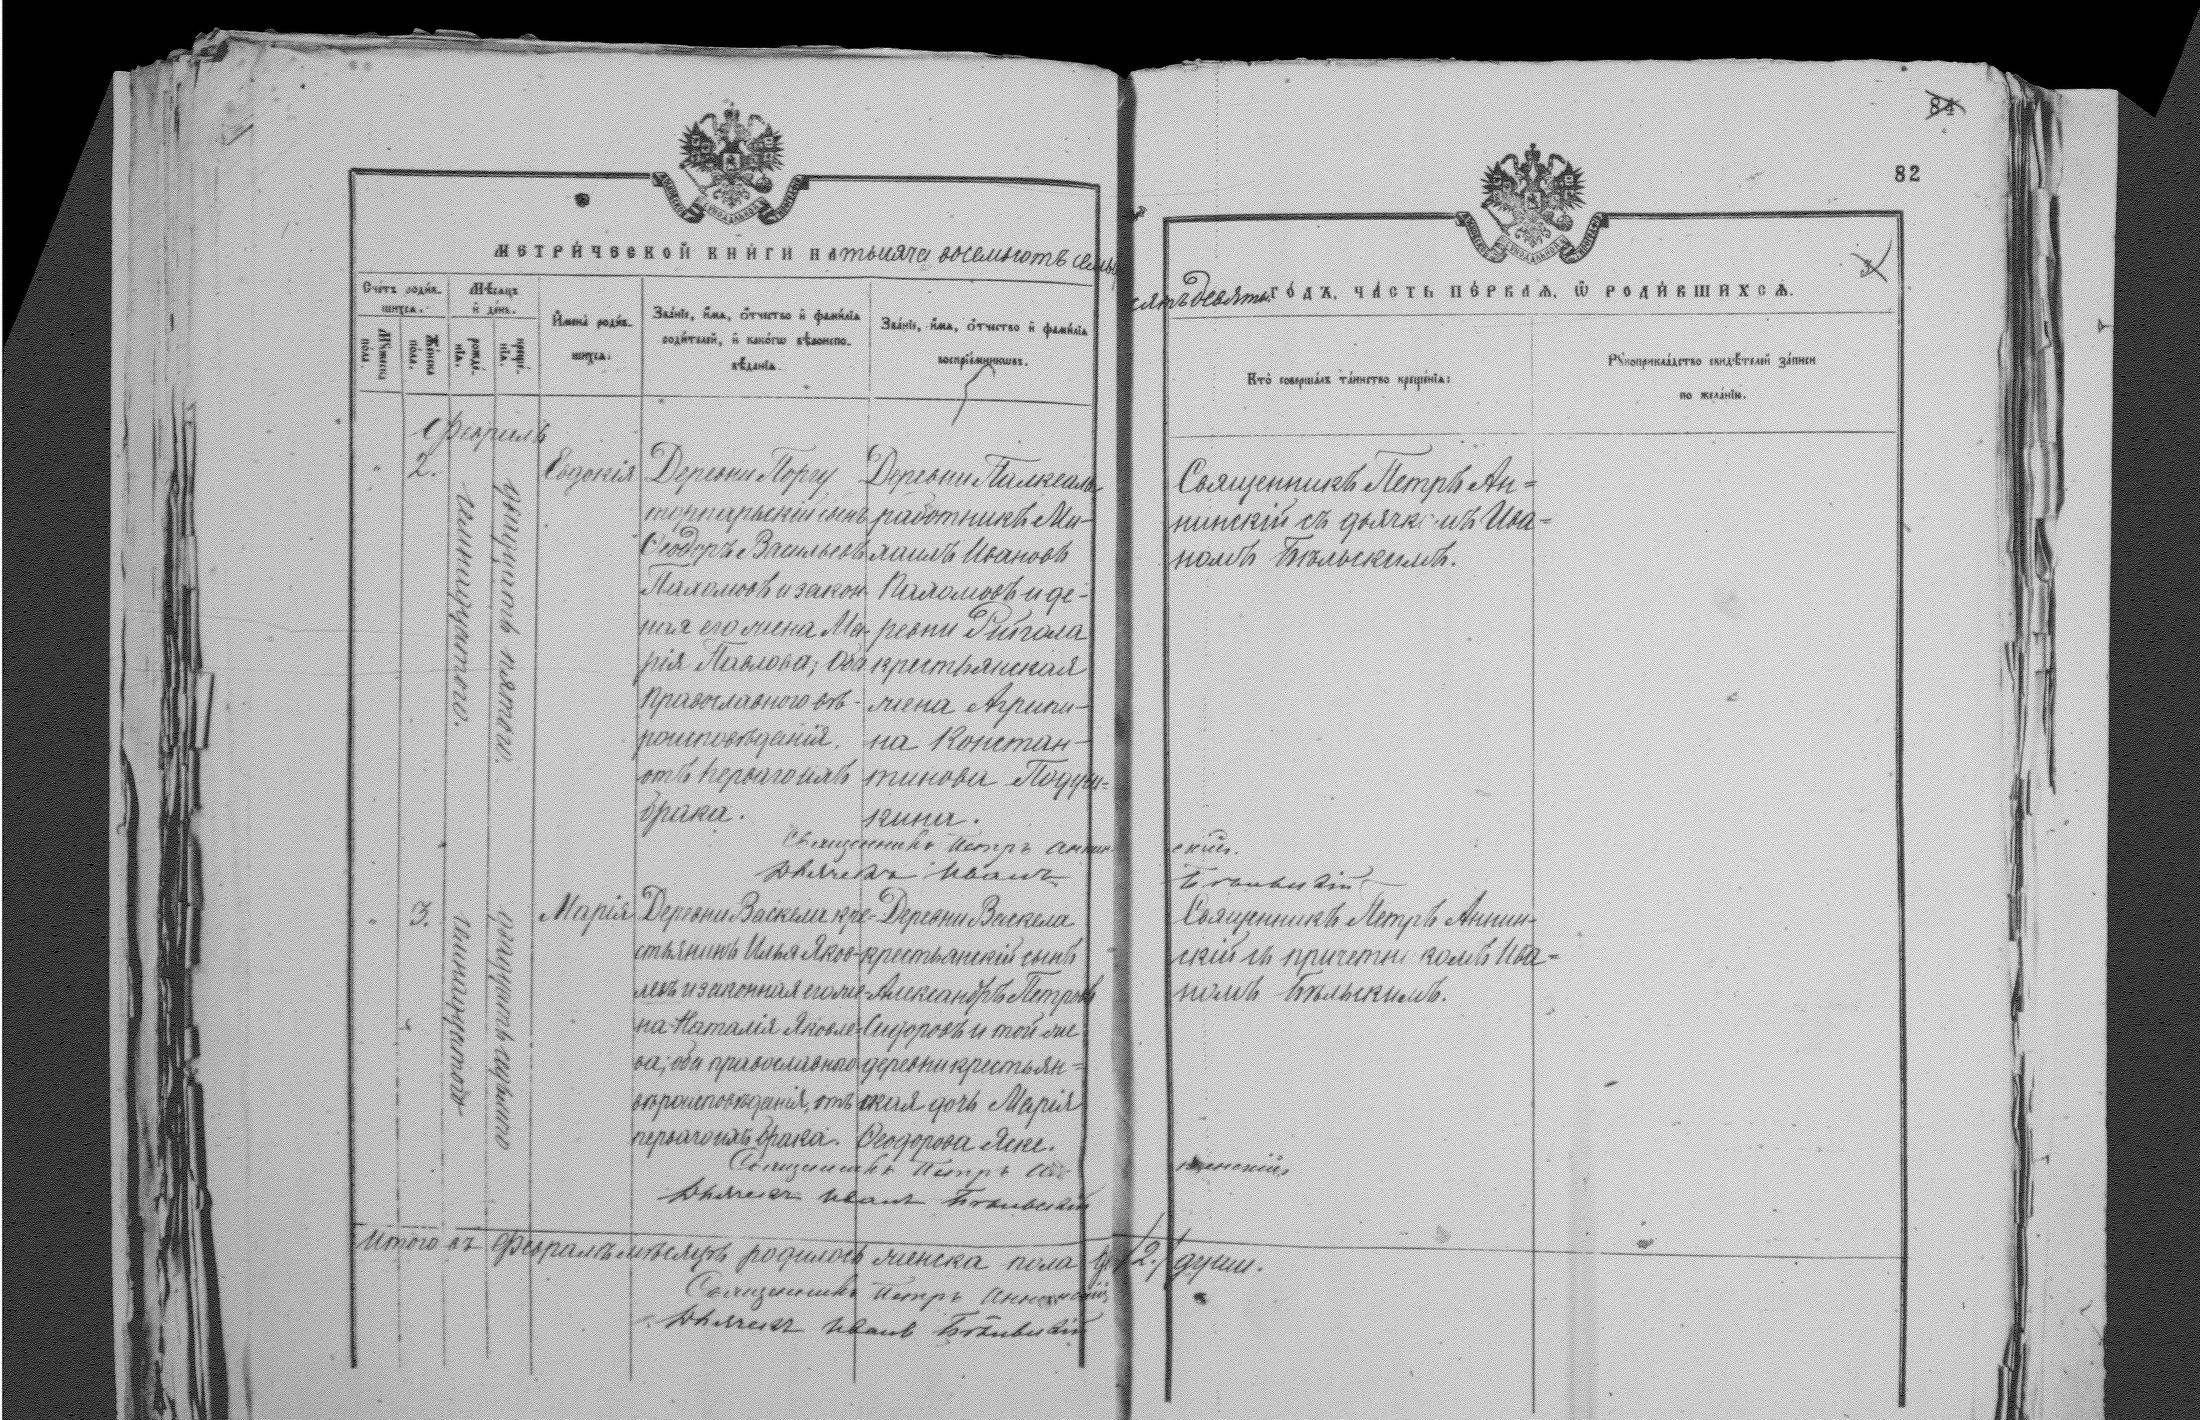 84
82
МЕТРИ́ЧЕСКОЙ КНИ́ГИ НА тысяча восемьсотъ семьдесятъ девятый ГО́ДЪ, ЧА́СТЬ ПЕ́РВАѦ, Ѡ҆ РОДИ́ВШИХСѦ.
3
Счетъ роди́вшихсѧ.
Мѣ́сѧцъ и҆ де́нь.
И҆мена̀ роди́вшихсѧ.
Зва́нїе, и҆́мѧ, ѻ҆́тчество и҆ фами́лїѧ родителей, и҆ како́гѡ вѣроисповѣ́данїѧ.
Зва́нїе, и҆́мѧ, ѻ҆́тчество и҆ фами́лїѧ воспрїе́мникѡвъ.
Кто̀ соверша́лъ та́инство креще́нїѧ:
Рꙋкоприкла́дство свидѣ́телей за́писи по жела́нїю.
Мꙋ́жеска по́ла.
Же́нска по́ла.
рожде́нїѧ.
креще́нїѧ.
Февраль
2.
семнадцатого.
двадцать пятого.
Евдокія
Деревни Поргу
торпарьскій сынъ
Ѳеодоръ Васильевъ
Пахомовъ и закон-
ная его жена Ма-
рія Павлова; оба
православного вѣ-
роисповѣданія,
отъ перваго ихъ
брака.
Деревни Палкеала
работникъ Ми-
хаилъ Ивановъ
Пахомовъ и де-
ревни Рийгола
крестьянская
жена Агрипи-
на Констан-
тинова
кина.
Священникъ Петръ Ан=
нинскій съ дьячкомъ Ива=
номъ Бѣльскимъ.
Священникъ Петръ Аннинскій.
Дьячекъ Иванъ Бѣльскій
3.
семнадцатого
Марія
Деревни Васкела кре-
стьянинъ Илья Яков-
левъ и законная его же-
на Наталія Яковле-
ва; оба православного
вѣроисповѣданія, отъ
перваго ихъ брака.
Деревни Васкела
крестьянскій сынъ
Александръ Петровъ
Сидоровъ и той же
деревни крестьян=
ская дочь Марія
Ѳеодорова Яске.
Священникъ Петръ Аннин-
скій съ причетникомъ Ива=
номъ Бѣльскимъ.
Священникъ Петръ Аннинскій
Дьячекъ Иванъ Бѣльскій
Итого въ Февралѣ мѣсяцѣ родилось женска пола /2./ души.
Священникъ Петръ Аннинскій
Дьячекъ Иванъ Бѣльскій